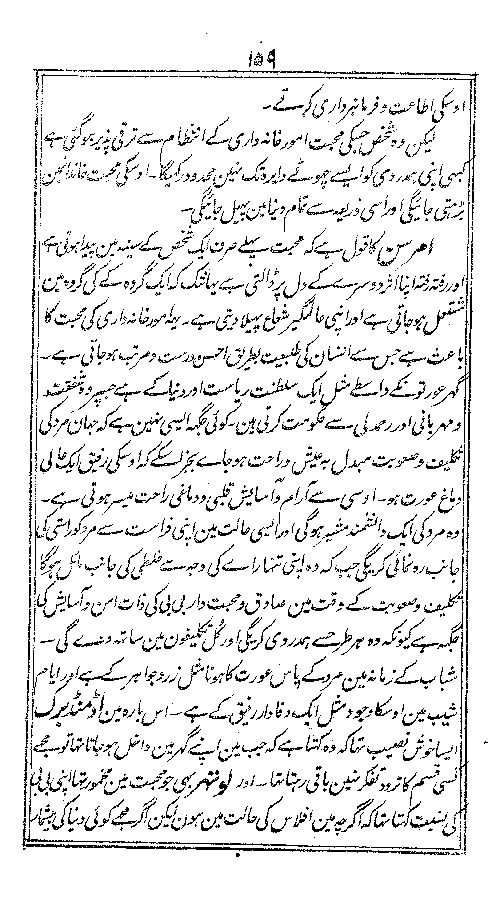 ۱۵۹
اوسکی اطاعت و فرمانبرداری کرتے ۔
لیکن وہ شخص جسکی محبت امور خانہ داری کے انتظام سے ترقی پذیر ہوگئی ہے
کبھی اپنی ہمدردی کو ایسے چھوٹے دایرہ تک نہین محدود رکھیگا ۔ اوسکی محبت خاندانمین
بڑھتی جائیگی اور اسی ذریعہ سے تمام دنیا مین پھیل جائیگی ۔
امرسن کا قول ہے کہ محبت پہلے صرف ایک شخص کے سینہ مین پیدا ہوتی ہے
اور رفتہ رفتہ اپنا اثر دوسرے کے دل پر ڈالتی ہے یہانتک کہ ایک گروہ کے گروہ مین
مشتعل ہوجاتی ہے اور اپنی عالمگیر شعاع پھیلا دیتی ہے ۔ یہ امور خانہ داری کی محبت کا
باعث ہے جس سے انسان کی طبیعت بطریق احسن درست و مرتب ہوجاتی ہے ۔
گھر عورتونکے واسطے مثل ایک سلطنت ریاست اور دنیا کے ہے جسپر وہ شفقت
و مہربانی اور رحمدلی سے حکومت کرتی ہین ۔ کوئی جگہ ایسی نہین ہے کہ جہان مرد کی
تکلیف و صعوبت مبدل بہ عیش و راحت ہوجاے بجز اسکے کہ اوسکی رفیق ایک عالی
دماغ عورت ہو ۔ اوسی سے آرام و آسایش قلبی و دماغی راحت میسر ہوتی ہے ۔
وہ مرد کی ایک دانشمند مشیر ہوگی اور ایسی حالت مین اپنی فراست سے مرد کو راستی کی
جانب رہنمائی کریگی جب کہ وہ اپنی تنہا راے کی وجہ سے غلطی کی جانب مائل ہوگا
تکلیف و صعوبت کے وقت مین صادق و محبت دار بی بی کی ذات امن و آسایش کی
جگہ ہے کیونکہ وہ ہر طرح سے ہمدردی کریگی اور کل تکلیفون مین ساتھ دے گی ۔
شباب کے زمانہ مین مرد کے پاس عورت کا ہونا مثل زر و جواہر کے ہے اور ایام
شیب مین اوسکا وجود مثل ایک وفادار رفیق کے ہے ۔ اس بارہ مین اڈمنڈ برک
ایسا خوش نصیب تھا کہ وہ کہتا ہے کہ جب مین اپنے گھر مین داخل ہوجاتا تھا تو مجھے
کسی قسم کا تردد تفکر نہین باقی رہتا تھا ۔ اور لوتھر بھی جو محبت مین مخمور تھا اپنی بی بی
کی نسبت کہتا تھا کہ اگرچہ مین افلاس کی حالت مین ہون لیکن اگر مجھے کوئی دنیا کی بیشمار